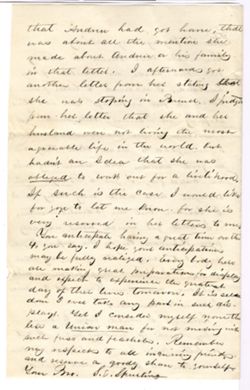 that Andrew had got home, that
was about all the mention she
made about Andrew or his family
in that letter. I afterwards got
another letter from her stating that
she was stoping in I judge
from her letter that she and her
husband were not living the most
agreeable life in the world, but
hadn't an Idea that she was
obliged to work out for a livelihood.
If such is the case I would like
for you to let me know. for she is
very reserved in her letters to me
You anticipate having a great time on the
4th you say, I hope your anticipations
may be fully realized. Every body here
are making great preparations for display
and expects to experience the greatest
day of their lives tomorrow. It is seldom
I ever take any part in such displays.
Yet I consider myself none the
less a Union man for not moving in
such fuss and feathers. Remember
my respects to all enquiring friends
and reserve a goodly share to yourself
Your Bro. J. E. Spurling